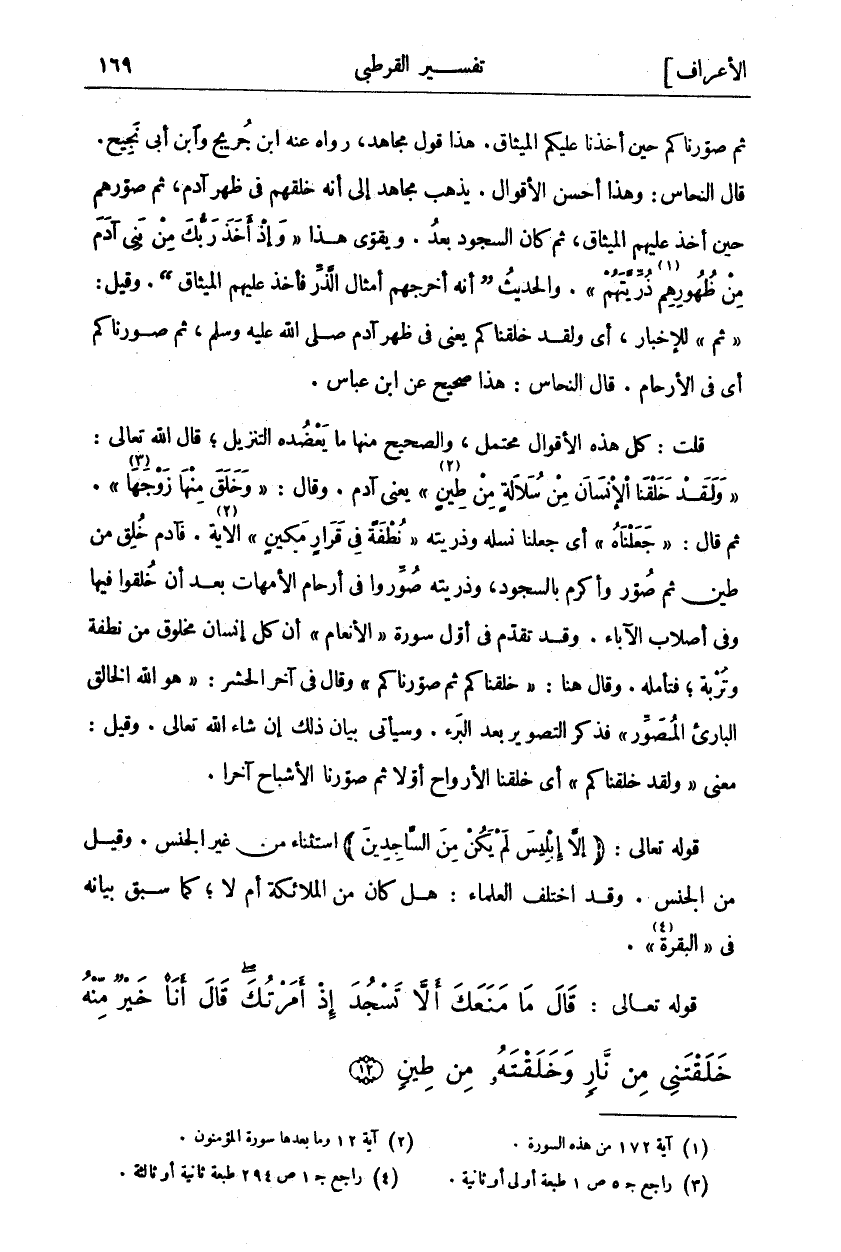 الأعراف] تفسير القرطبى ١٦٩
ثم صوّرناكم حين أخذنا عليكم الميثاق. هذا قول مجاهد، رواه عنه ابن جُريج وآبن أبى نَجِيح.
قال النحاس: وهذا أحسن الأقوال. يذهب مجاهد إلى أنه خلقهم فى ظهر آدم، ثم صوّرهم
حين أخذ عليهم الميثاق، ثم كان السجود بعدُ. ويقوّى هـذا «وَإِذْ أَخَذَ رَبُّكَ مِنْ بَنِى آدَمَ
مِنْ ظُهُورِهِم ذُرِّيَّتَهُمْ(١)». والحديثُ ”أنه أخرجهم أمثال الذَّرِّ فأخذ عليهم الميثاق“. وقيل:
«ثم» للإخبار، أى ولقـد خلقناكم يعنى فى ظهر آدم صلى الله عليه وسلم، ثم صـورناكم
أى فى الأرحام. قال النحاس: هذا صحيح عن ابن عباس.
قلت: كل هذه الأقوال محتمل، والصحيح منها ما يَعْضُده التنزيل؛ قال الله تعالى:
«وَلَقَـدْ خَلَقْنَا الْإِنْسَانَ مِنْ سُلَالَةٍ مِنْ طِينٍ(٢)» يعنى آدم. وقال: «وَخَلَقَ مِنْهَا زَوْجَهَا(٣)».
ثم قال: «جَعَلْنَاهُ» أى جعلنا نسله وذريته «نُطْفَةً فِى قَرَارٍ مَكِينٍ(٢)» الآية. فآدم خُلِق من
طين ثم صُوّر وأكرم بالسجود، وذريته صُوِّروا فى أرحام الأمهات بعـد أن خُلقوا فيها
وفى أصلاب الآباء. وقـد تقدّم فى أوّل سورة «الأنعام» أن كل إنسان مخلوق من نطفة
وتُرْبة؛ فتأمله. وقال هنا: «خلقناكم ثم صوّرناكم» وقال فى آخر الحشر: «هو الله الخالق
البارئ المُصَوِّر» فذكر التصوير بعد البَرء. وسيأتى بيان ذلك إن شاء الله تعالى. وقيل:
معنى «ولقد خلقناكم» أى خلقنا الأرواح أوّلا ثم صوّرنا الأشباح آخرا.
قوله تعالى: ﴿إِلَّا إِبْلِيسَ لَمْ يَكُنْ مِنَ السَّاجِدِينَ﴾ استثناء من غير الجنس. وقيـل
من الجنس. وقـد اختلف العلماء: هـل كان من الملائكة أم لا؛ كما سـبق بيانه
فى «البقرة(٤)».
قوله تعـالى: قَالَ مَا مَنَعَكَ أَلَّا تَسْجُدَ إِذْ أَمَرْتُكَ ۖ قَالَ أَنَا۠ خَيْرٌ مِّنْهُ
خَلَقْتَنِى مِن نَّارٍ وَخَلَقْتَهُۥ مِن طِينٍ ﴿١٢﴾
(١) آية ١٧٢ من هذه السورة. (٢) آية ١٢ وما بعدها سورة المؤمنون.
(٣) راجع جـ ٥ ص ١ طبعة أولى أو ثانية. (٤) راجع جـ ١ ص ٢٩٤ طبعة ثانية أو ثالثة.